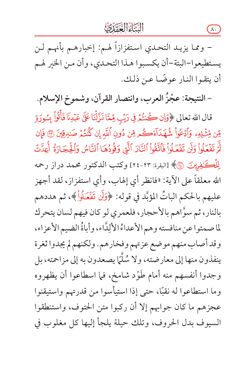 ٨٠
البناء العقدي
- ومما يزيد التحدي استفزازاً لهم: إخبارهم بأنهم لـن
يستطيعوا-البتة-أن يكسبوا هـذا التحدي، وأن من الخير لهم
أن يتقوا النار عوضًا عـن ذلك.
- النتيجة: عجْزُ العرب، وانتصار القرآن، وشموخ الإسلام.
قال الله تعالى ﴿وَإِن كُنتُمْ فِي رَيْبٍ مِّمَّا نَزَّلْنَا عَلَىٰ عَبْدِنَا فَأْتُوا بِسُورَةٍ
مِّن مِّثْلِهِ وَادْعُوا شُهَدَاءَكُم مِّن دُونِ اللَّهِ إِن كُنتُمْ صَادِقِينَ ﴿٢٣﴾ فَإِن
لَّمْ تَفْعَلُوا وَلَن تَفْعَلُوا فَاتَّقُوا النَّارَ الَّتِي وَقُودُهَا النَّاسُ وَالْحِجَارَةُ أُعِدَّتْ
لِلْكَافِرِينَ ﴿٢٤﴾﴾ [البقرة: ٢٣-٢٤] وكتب الدكتور محمد دراز رحمه
الله معلقاً على الآية: «فانظر أي إلهاب، وأي استفزاز، لقد أجهز
عليهم بالحكم الباتِّ المؤبَّد في قوله: ﴿وَلَن تَفْعَلُوا﴾، ثم هددهم
بالنار، ثم سوَّاهم بالأحجار، فلعمري لو كان فيهم لسان يتحرك
لما صمتوا عن منافسته وهم الأعداءُ الألِدَّاء، وأباةُ الضيم الأعزاء،
وقد أصاب منهم موضع عزتهم وفخارهم. ولكنهم لم يجدوا ثغرة
ينفذون منها إلى معارضته، ولا سُلَّمًا يصعدون به إلى مزاحمته، بل
وجدوا أنفسهم منه أمام طَوْد شامخ، فما اسطاعوا أن يظهروه
وما استطاعوا له نقبًا، حتى إذا استيأسوا من قدرتهم واستيقنوا
عجزهم ما كان جوابهم إلا أن ركبوا متن الحتوف، واستنطقوا
السيوف بدل الحروف، وتلك حيلة يلجأ إليها كل مغلوب في